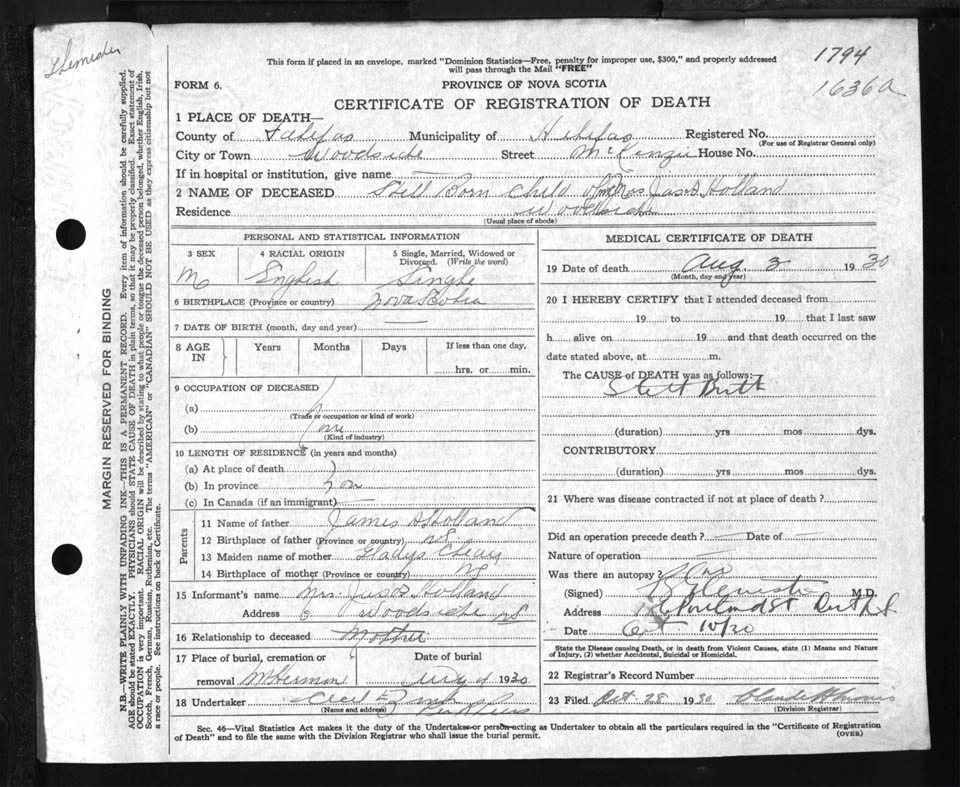 This form if placed in an envelope, marked "Dominion Statistics—Free, penalty for improper use, $300," and properly addressed
will pass through the Mail "FREE"
1794
1636a
FORM 6.
PROVINCE OF NOVA SCOTIA
CERTIFICATE OF REGISTRATION OF DEATH
1 PLACE OF DEATH—
County of Halifax Municipality of Halifax Registered No.
(For use of Registrar General only)
City or Town Woodside Street McKenzie House No.
If in hospital or institution, give name —
2 NAME OF DECEASED Still Born Child Mrs Jas Holland
Residence Woodside
(Usual place of abode)
PERSONAL AND STATISTICAL INFORMATION
3 SEX
M
4 RACIAL ORIGIN
English
5 Single, Married, Widowed or Divorced. (Write the word)
Single
6 BIRTHPLACE (Province or country) Nova Scotia
7 DATE OF BIRTH (month, day and year) —
8 AGE IN Years Months Days If less than one day, hrs. or min.
9 OCCUPATION OF DECEASED
(a)
(Trade or occupation or kind of work)
(b)
(Kind of industry)
10 LENGTH OF RESIDENCE (in years and months)
(a) At place of death
(b) In province
(c) In Canada (if an immigrant) —
Parents
11 Name of father James Holland
12 Birthplace of father (Province or country) NS
13 Maiden name of mother Gladys
14 Birthplace of mother (Province or country) NS
15 Informant's name Mrs. Jas Holland
Address Woodside NS
16 Relationship to deceased Mother
17 Place of burial, cremation or removal Date of burial
1930
18 Undertaker Cecil E. Zink
(Name and address)
MEDICAL CERTIFICATE OF DEATH
19 Date of death Aug 3 1930
(Month, day and year)
20 I HEREBY CERTIFY that I attended deceased from
19 to 19 that I last saw
h alive on 19 and that death occurred on the
date stated above, at m.
The CAUSE of DEATH was as follows:
Still Birth
(duration) yrs mos dys.
CONTRIBUTORY
(duration) yrs mos dys.
21 Where was disease contracted if not at place of death?
Did an operation precede death? — Date of —
Nature of operation —
Was there an autopsy? No
(Signed) M.D.
Address Portland St
Date Oct 10/30
State the Disease causing Death, or in death from Violent Causes, state (1) Means and Nature
of Injury, (2) whether Accidental, Suicidal or Homicidal.
22 Registrar's Record Number
23 Filed Oct 28 1930
(Division Registrar)
Sec. 46—Vital Statistics Act makes it the duty of the Undertaker or person acting as Undertaker to obtain all the particulars required in the "Certificate of Registration
of Death" and to file the same with the Division Registrar who shall issue the burial permit.
(OVER)
MARGIN RESERVED FOR BINDING
N.B.—WRITE PLAINLY WITH UNFADING INK—THIS IS A PERMANENT RECORD. Every item of information should be carefully supplied.
AGE should be stated EXACTLY. PHYSICIANS should STATE CAUSE OF DEATH in plain terms, so that it may be properly classified. Exact statement of
OCCUPATION is very important. RACIAL ORIGIN will be described by stating to what people or tongue the deceased person belonged, whether English, Irish,
Scotch, French, German, Russian, Ruthenian, etc. The terms "AMERICAN" or "CANADIAN" SHOULD NOT BE USED as they express citizenship but not
a race or people. See instructions on back of Certificate.